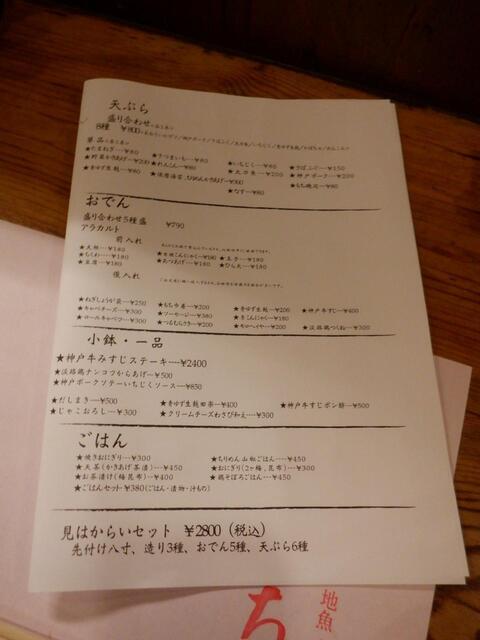 天ぷら
盛り合わせ
8種 ¥800
単品
★たまねぎ…¥80 ★さつまいも…¥80 ★いちじく…¥80 ★さばふぐ…¥150
★野菜かきあげ…¥200 ★れんこん…¥80 ★太刀魚…¥200 ★神戸ポーク…¥200
★青ゆず生麩…¥80 ★なす…¥80
おでん
盛り合わせ5種盛 ¥790
アラカルト
前入れ
★大根…¥180 ★玉子…¥180
★ちくわ…¥180 ★あつあげ…¥180 ★ひら天…¥180
★豆腐…¥180
後入れ
★ねぎしょうが袋…¥250 ★もち巾着…¥200 ★青ゆず生麩…¥200 ★神戸牛すじ…¥400
★キャベチーズ…¥300 ★ソーセージ…¥380 ★糸こんにゃく…¥180
★ロールキャベツ…¥300 ★つるむらさき…¥200 ★淡路鶏つくね…¥300
小鉢・一品
★神戸牛みすじステーキ…¥2400
★淡路鶏ナンコツからあげ…¥500
★神戸ポークソテーいちじくソース…¥850
★だしまき…¥500 ★青ゆず生麩田楽…¥400 ★神戸牛すじポン酢…¥500
★じゃこおろし…¥300 ★クリームチーズわさび和え…¥300
ごはん
★焼きおにぎり…¥300 ★ちりめん山椒ごはん…¥450
★天茶(かきあげ茶漬)…¥450 ★おにぎり(2ヶ梅、昆布)…¥300
★お茶漬け(梅昆布)…¥400 ★鶏そぼろごはん…¥450
★ごはんセット…¥380(ごはん・漬物・汁もの)
見はからいセット ¥2800 (税込)
先付け八寸、造り3種、おでん5種、天ぷら6種
地魚
ち